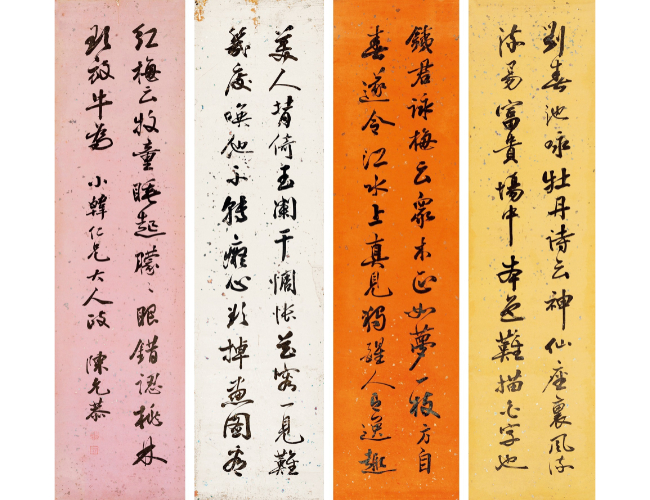 劉春池咏牡丹诗云神仙座裏风流
流易富貴場中本色難描它字也
鐵君詠梅云衆木正如夢一枝方自
春遂令江水上真見獨醒人有逸趣
美人背倚玉闌干惆悵花容一見難
幾度喚他不轉癡心欲掉畫圖看
紅梅云牧童睡起朦々眼錯認桃林
欲放牛為 小韓仁兄大人政 陳允恭